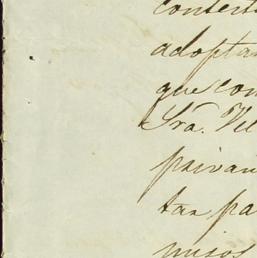 contest
adoptan
que con
Sra. Vil
privan
tas pa
misos